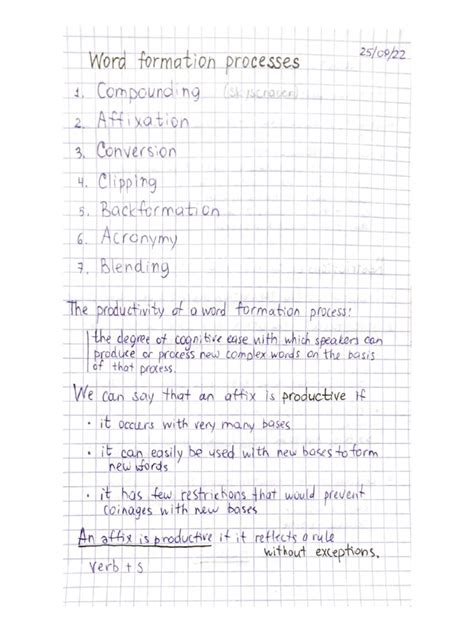 25/09/22
Word formation processes
1. Compounding
2. Affixation
3. Conversion
4. Clipping
5. Backformation
6. Acronymy
7. Blending
The productivity of a word formation process:
the degree of cognitive ease with which speakers can
produce or process new complex words on the basis
of that process.
We can say that an affix is productive if
· it occurs with very many bases
· it can easily be used with new bases to form
new words
· it has few restrictions that would prevent
coinages with new bases
An affix is productive if it reflects a rule
without exceptions.
verb + s